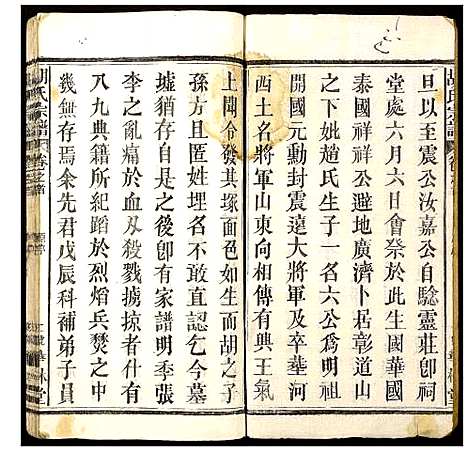 胡氏宗譜
旦以至震公汝嘉公自騐靈莊卽祠
堂處六月六日會祭於此生國華國
泰國祥祥公避地廣濟卜居彰道山
之下妣趙氏生子一名六公爲明祖
開國元勳封震遠大將軍及卒明
西土名將軍山東向相傳有天子王氣
上聞令發其塚面色如生而胡之子
孫方且匿姓埋名不敢直認乞今墓
墟猶存自是之後卽有家譜明季張
李之亂痛於血刄殺戮擄掠者什之
八九典籍所紀燬於烈熖兵燹之中
幾無存焉余先君戊辰科補弟子員
胡氏宗譜
華林堂